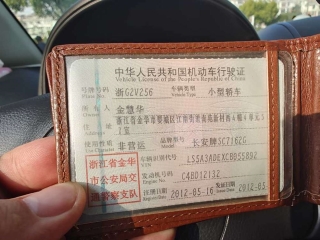 中华人民共和国机动车行驶证
Vehicle License of the People's Republic of China
号牌号码 浙G2V256 车辆类型 小型轿车
Plate No. Vehicle Type
所有人 金慧华
住址 浙江省金华市婺城区江南街道
使用性质 非营运 品牌型号 长安牌SC7162G
浙江省金华
市公安局交
通警察支队
车辆识别代号 LS5A3ADEXCB055892
发动机号码 C4BD12132
Engine No.
注册日期 2012-05-16 发证日期 2012-05